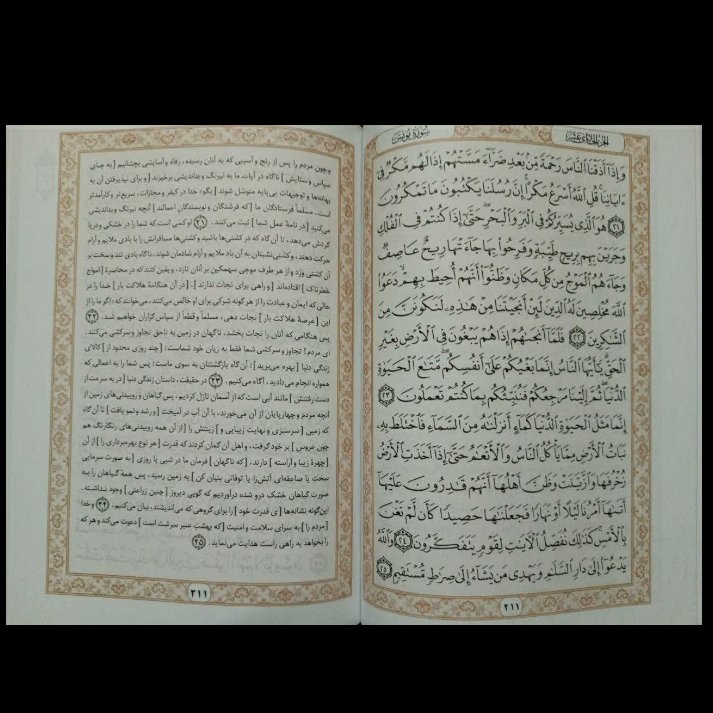 الجزء الحادي عشر
سورة يونس
وَإِذَا أَذَقْنَا النَّاسَ رَحْمَةً مِّن بَعْدِ ضَرَّاءَ مَسَّتْهُمْ إِذَا لَهُم مَّكْرٌ فِي
ءَايَاتِنَا قُلِ اللَّهُ أَسْرَعُ مَكْرًا إِنَّ رُسُلَنَا يَكْتُبُونَ مَا تَمْكُرُونَ
٢١ هُوَ الَّذِي يُسَيِّرُكُمْ فِي الْبَرِّ وَالْبَحْرِ حَتَّى إِذَا كُنتُمْ فِي الْفُلْكِ
وَجَرَيْنَ بِهِم بِرِيحٍ طَيِّبَةٍ وَفَرِحُوا بِهَا جَاءَتْهَا رِيحٌ عَاصِفٌ
وَجَاءَهُمُ الْمَوْجُ مِن كُلِّ مَكَانٍ وَظَنُّوا أَنَّهُمْ أُحِيطَ بِهِمْ دَعَوُا
اللَّهَ مُخْلِصِينَ لَهُ الدِّينَ لَئِنْ أَنجَيْتَنَا مِنْ هَٰذِهِ لَنَكُونَنَّ مِنَ
الشَّاكِرِينَ ٢٢ فَلَمَّا أَنجَاهُمْ إِذَا هُمْ يَبْغُونَ فِي الْأَرْضِ بِغَيْرِ
الْحَقِّ يَا أَيُّهَا النَّاسُ إِنَّمَا بَغْيُكُمْ عَلَى أَنفُسِكُم مَّتَاعَ الْحَيَاةِ
الدُّنْيَا ثُمَّ إِلَيْنَا مَرْجِعُكُمْ فَنُنَبِّئُكُم بِمَا كُنتُمْ تَعْمَلُونَ ٢٣
إِنَّمَا مَثَلُ الْحَيَاةِ الدُّنْيَا كَمَاءٍ أَنزَلْنَاهُ مِنَ السَّمَاءِ فَاخْتَلَطَ بِهِ
نَبَاتُ الْأَرْضِ مِمَّا يَأْكُلُ النَّاسُ وَالْأَنْعَامُ حَتَّى إِذَا أَخَذَتِ الْأَرْضُ
زُخْرُفَهَا وَازَّيَّنَتْ وَظَنَّ أَهْلُهَا أَنَّهُمْ قَادِرُونَ عَلَيْهَا
أَتَاهَا أَمْرُنَا لَيْلًا أَوْ نَهَارًا فَجَعَلْنَاهَا حَصِيدًا كَأَن لَّمْ تَغْنَ
بِالْأَمْسِ كَذَٰلِكَ نُفَصِّلُ الْآيَاتِ لِقَوْمٍ يَتَفَكَّرُونَ ٢٤ وَاللَّهُ
يَدْعُو إِلَى دَارِ السَّلَامِ وَيَهْدِي مَن يَشَاءُ إِلَى صِرَاطٍ مُّسْتَقِيمٍ ٢٥
٢١١
و چون مردم را پس از رنج و آسیبی که به آنان رسیده، رفاه و آسایشی بچشانیم [به جای
سپاس و ستایش] ناگاه در آیات ما به نیرنگ و بداندیشی برخیزند [و برای نپذیرفتن آن به
بهانه‌ها و توجیهات بی‌پایه متوسّل شوند] بگو: خدا در کیفر و مجازات، سریع‌تر و کارآمدتر
است. مسلماً فرستادگان ما [که فرشتگان و نویسندگان اعمالند] آنچه نیرنگ و بداندیشی
می‌کنید [در نامهٔ عمل شما] ثبت می‌کنند. ٢١ او کسی است که شما را در خشکی و دریا
گردش می‌دهد، تا آن گاه که در کشتی‌ها باشید و کشتی‌ها مسافرانش را با بادی ملایم و آرام
حرکت دهند، و کشتی‌نشینان به آن باد ملایم و آرام شادمان شوند، ناگاه بادی تند و سخت بر
آن کشتی وزد و از هر طرف موجی سهمگین بر آنان تازد، و یقین کنند که در محاصرهٔ [امواج
خطرناک] افتاده‌اند [و راهی برای نجات ندارند]، [در آن هنگامهٔ هلاکت بار] خدا را در
حالی که ایمان و عبادت را از هر گونه شرکی برای او خالص می‌کنند، می‌خوانند که: اگر ما را از
این [عرصهٔ هلاکت بار] نجات دهی، مسلماً و قطعاً از سپاس گزاران خواهیم شد. ٢٢
پس هنگامی که آنان را نجات بخشد، ناگهان در زمین به ناحق تجاوز و سرکشی می‌کنند.
ای مردم! تجاوز و سرکشی شما فقط به زیان خود شماست؛ [چند روزی محدود از] کالای
زندگی دنیا [بهره می‌برید]؛ آن گاه بازگشتتان به سوی ماست؛ پس شما را به اعمالی که
همواره انجام می‌دادید، آگاه می‌کنیم. ٢٣ در حقیقت، داستان زندگی دنیا [در به سرعت از
دست رفتنش] مانند آبی است که از آسمان نازل کردیم، پس گیاهان و روییدنی‌های زمین از
آنچه مردم و چهارپایان از آن می‌خورند، با آن آب در آمیخت [و رشد و نمو یافت] تا آن گاه
که زمین [سرسبزی و نهایت زیبایی و] زینتش را [از آن همه روییدنی‌های رنگارنگ هم
چون عروس] بر خود گرفت، و اهل آن گمان کردند که قدرت [هر نوع بهره‌برداری را] از آن
[چهرهٔ زیبا و آراسته] دارند، [که ناگهان] فرمان ما در شبی یا روزی [به صورت سرمایی
سخت یا صاعقه‌ای آتش‌زا یا توفانی بنیان کن] به زمین رسید، پس همهٔ گیاهان را به
صورت گیاهان خشک درو شده درآوردیم که گویی دیروز [چنین زراعتی] وجود نداشته.
این‌گونه نشانه‌ها [ی قدرت خود] را برای گروهی که می‌اندیشند، بیان می‌کنیم. ٢٤ و خدا
[مردم را] به سرای سلامت و امنیت [که بهشت عنبر سرشت است] دعوت می‌کند و هر که
را بخواهد به راهی راست هدایت می‌نماید. ٢٥
٢١١